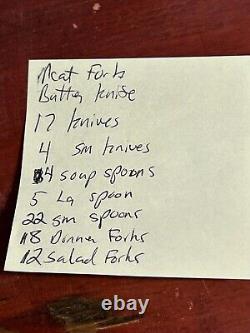 Meat Fork
Butter knife
17 knives
4 sm knives
4 soup spoons
5 La spoon
22 sm spoons
18 Dinner Forks
12 Salad Forks
ebay